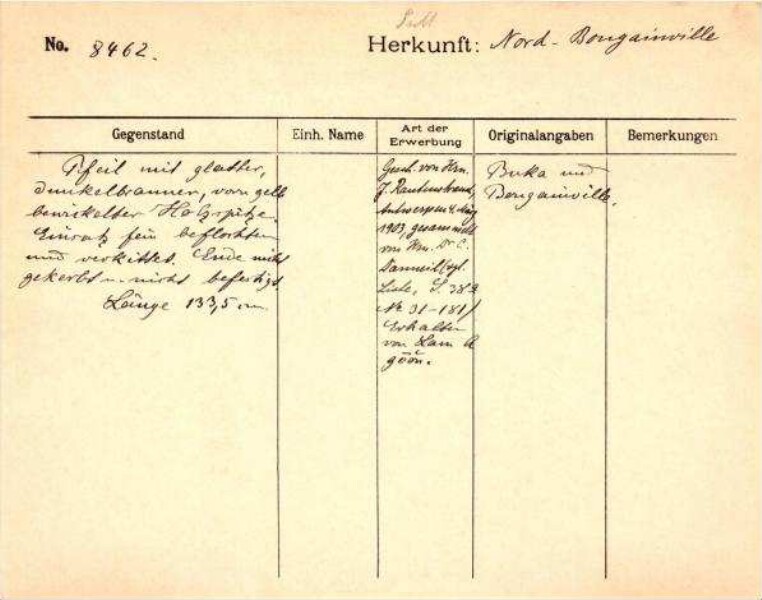 No. 8462.
Herkunft: Nord-Bougainville
Gegenstand
Einh. Name
Art der Erwerbung
Originalangaben
Bemerkungen
Pfeil mit glatter,
dunkelbrauner, vorn gelb
bewickelter Holzspitze.
Einsatz fein beflochten
und verkittet. Ende nicht
gekerbt u. nicht befestigt.
Länge 133,5 cm
Gesch. von Hrn.
J. Rautenstrauch,
Antwerpen
1903, gesammelt
von Hrn. Dr. C.
Liste, S. 382
№ 31-181)
Erhalten
von
Buka und
Bougainville.